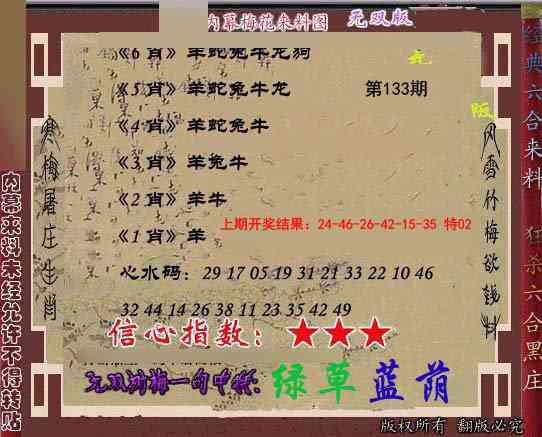 内幕梅花来料图 无双版
《6 肖》羊蛇兔牛龙狗
《5 肖》羊蛇兔牛龙 第133期
《4 肖》羊蛇兔牛
《3 肖》羊兔牛
《2 肖》羊牛
上期开奖结果：24-46-26-42-15-35 特02
《1 肖》羊
心水码：29 17 05 19 31 21 33 22 10 46
32 44 14 26 38 11 23 35 42 49
信心指数：★★★
无双 梅一句中特：绿草蓝荫
版权所有 翻版必究
寒梅屠庄生肖
风雪竹梅欲钱料
内幕来料未经允许不得转贴
经典六合来料
狂杀六合黑庄
版